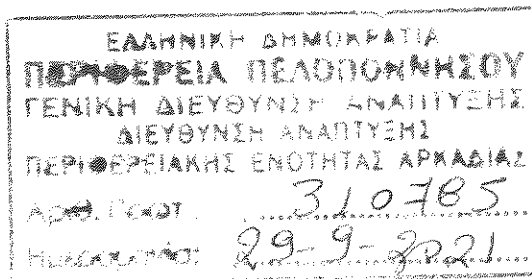 ΕΛΛΗΝΙΚΗ ΔΗΜΟΚΡΑΤΙΑ
ΠΕΡΙΦΕΡΕΙΑ ΠΕΛΟΠΟΝΝΗΣΟΥ
ΓΕΝΙΚΗ ΔΙΕΥΘΥΝΣΗ ΑΝΑΠΤΥΞΗΣ
ΔΙΕΥΘΥΝΣΗ ΑΝΑΠΤΥΞΗΣ
ΠΕΡΙΦΕΡΕΙΑΚΗΣ ΕΝΟΤΗΤΑΣ ΑΡΚΑΔΙΑΣ
Αριθ. Πρωτ. 310785
Ημερομηνία: 29-9-2021